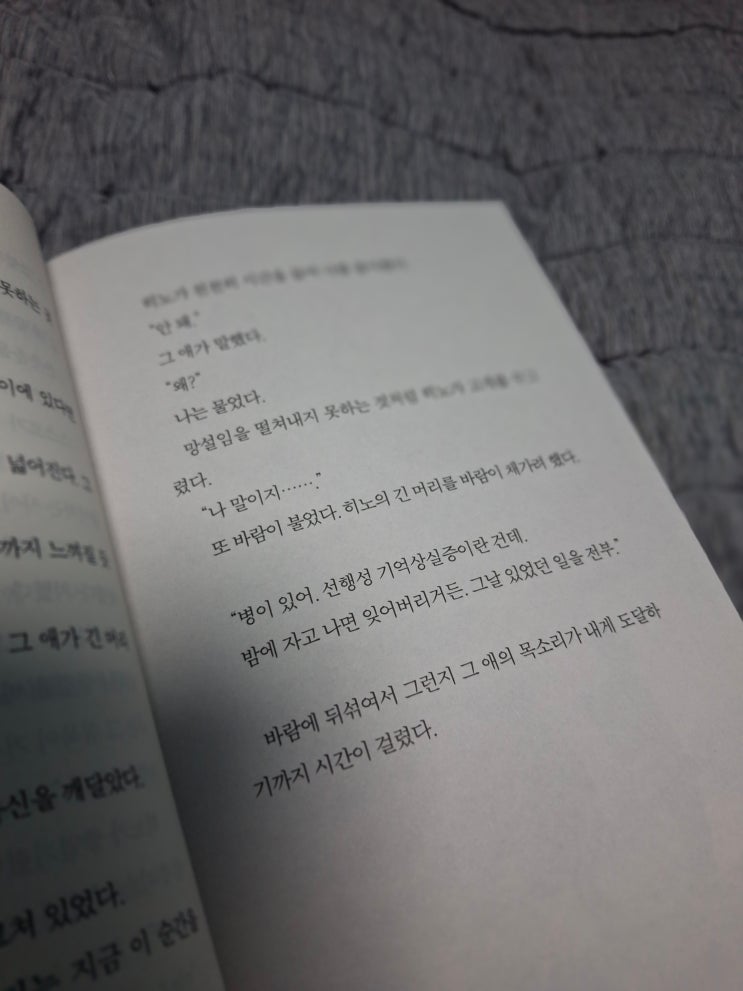 못하는
이에 있다면
넓어진다. 그
까지 느껴질
그 애가 긴 머리
신을 깨달았다.
쳐 있었다.
지금 이 순간을
히노가 시간을
"안 돼."
그 애가 말했다.
"왜?"
나는 물었다.
망설임을 떨쳐내지 못하는 것처럼 히노가 고개를 숙이고
렸다.
"나 말이지……."
또 바람이 불었다. 히노의 긴 머리를 바람이 채가려 했다.
"병이 있어. 선행성 기억상실증이란 건데.
밤에 자고 나면 잊어버리거든. 그날 있었던 일을 전부."
바람에 뒤섞여서 그런지 그 애의 목소리가 내게 도달하
기까지 시간이 걸렸다.